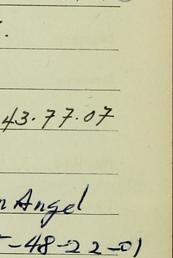 43.77.07
n Angel
-48-22-01